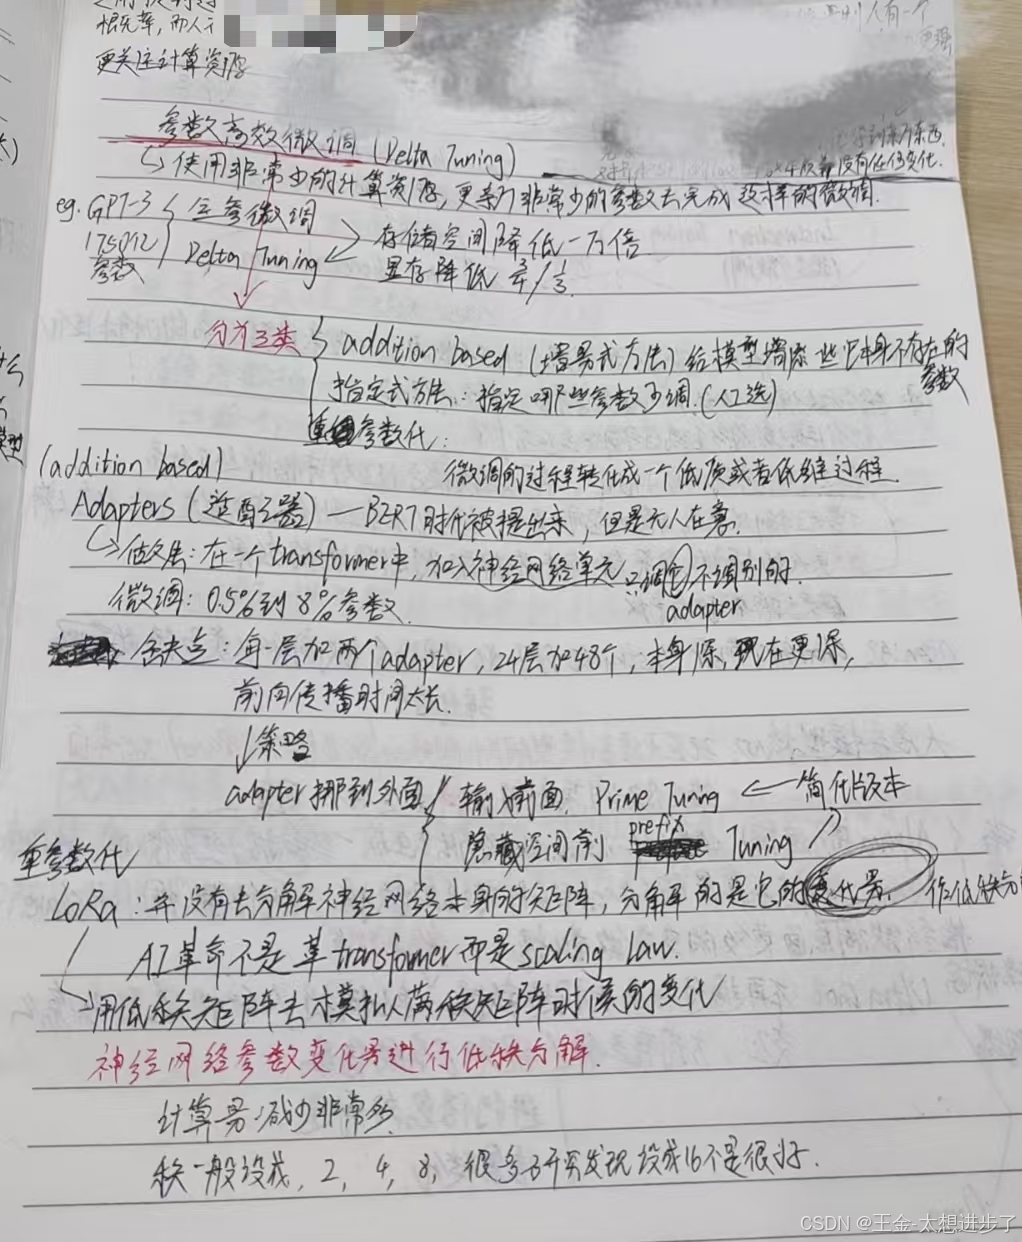 恨无革,而人
更关注计算资源
人有一个
更强
到东西
次都没有任何变化.
参数高效微调 (Delta Tuning)
使用非常少的计算资源,更新非常少的参数去完成这样的微调.
eg. GPT-3 全参微调
175012 参数 Delta Tuning
存储空间降低一万倍
显存降低 2/3 / 1/3.
分为三类
addition based (增易式方法) 给模型增添一些它本身不存在的参数
指定式方法:指定哪些参数少调.(人工选)
重参数化:
微调的过程转化成一个低质或者低维过程.
(addition based)
Adapters (适配器) — BERT时代被提出来,但是无人在意.
做法:在一个transformer中,加入神经网络单元 只调它 不调别的.
adapter
微调:0.5%到8%参数.
缺点:每一层加两个adapter,24层加48个,本身深,现在更深,
前向传播时间太长.
策略
adapter挪到外面 输入前面. Prime Tuning ← 简化版本
隐藏空间前 prefix Tuning
重参数化
LoRa:并没有去分解神经网络本身的矩阵,分解的是它的变化量. 作低秩分
AI革命不是革transformer而是scaling law.
用低秩矩阵去模拟满秩矩阵时候的变化
神经网络参数变化量进行低秩分解.
计算量减少非常多
秩一般设成,2,4,8,很多研究发现设成16不是很好.
CSDN @王金-太想进步了